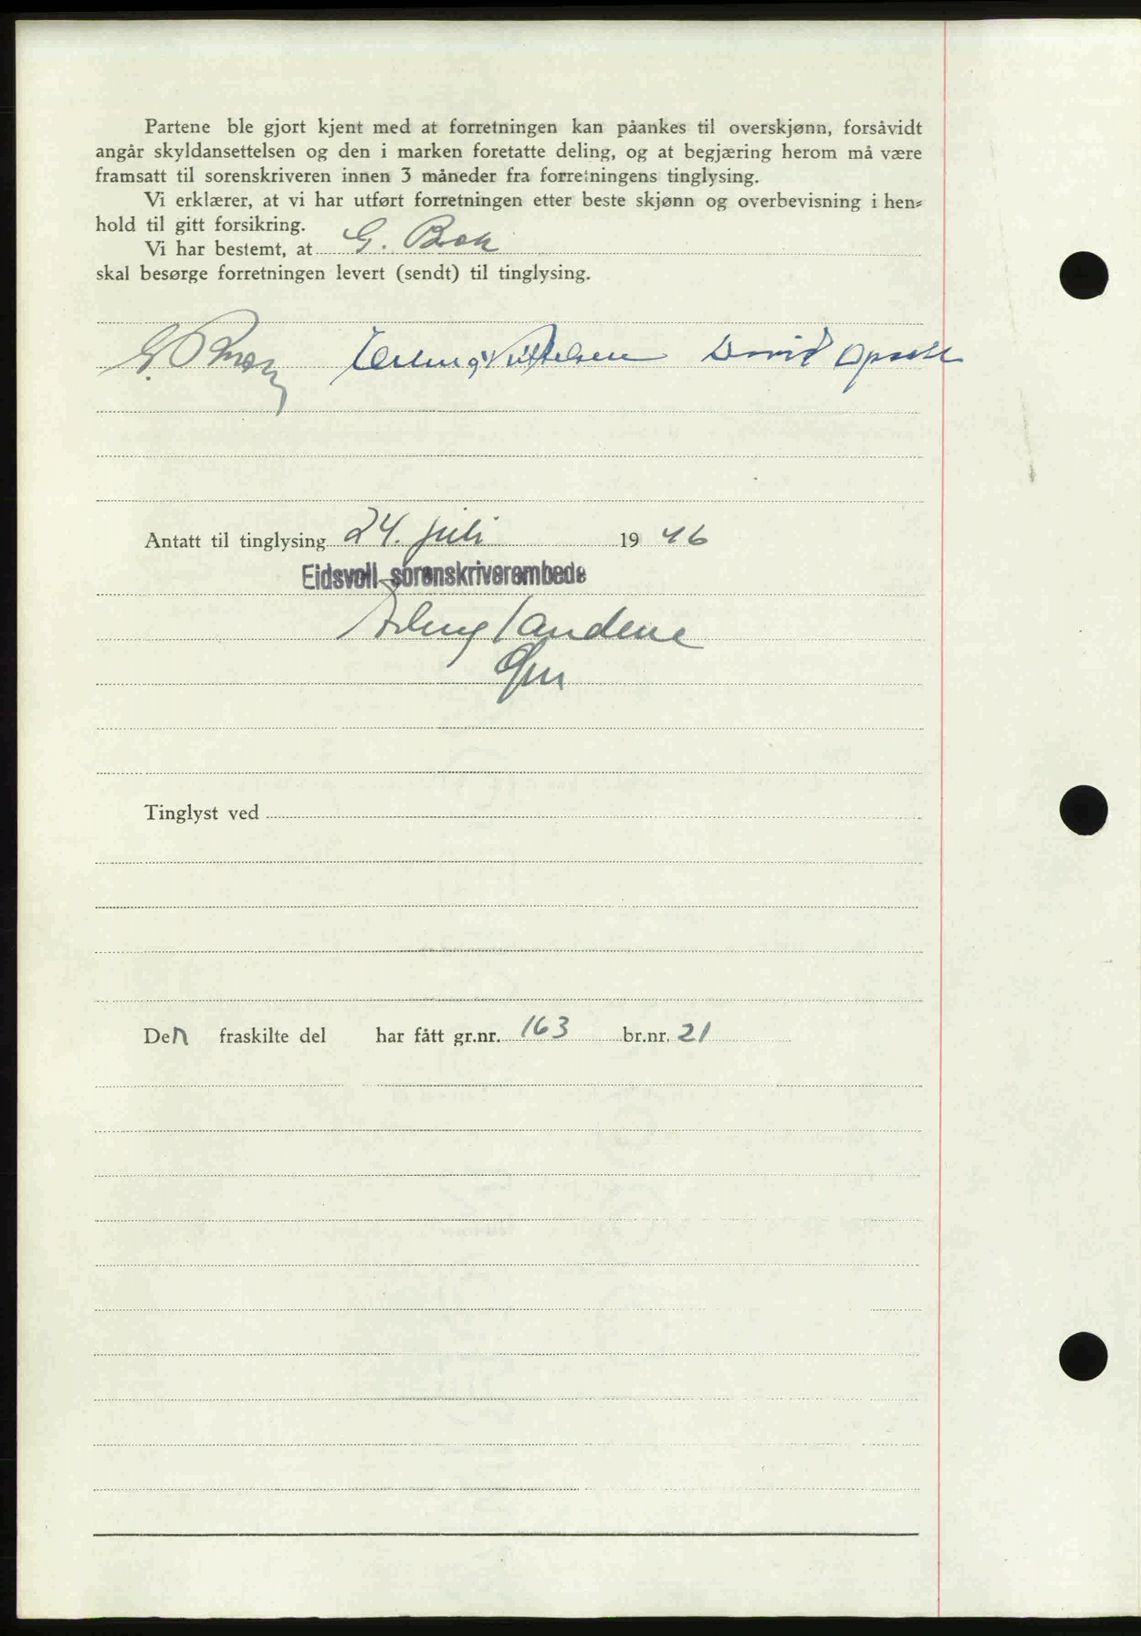 Partene ble gjort kjent med at forretningen kan påankes til overskjønn, forsåvidt
angår skyldansettelsen og den i marken foretatte deling, og at begjæring herom må være
framsatt til sorenskriveren innen 3 måneder fra forretningens tinglysing.
Vi erklærer, at vi har utført forretningen etter beste skjønn og overbevisning i hen-
hold til gitt forsikring.
Vi har bestemt, at G.
skal besørge forretningen levert (sendt) til tinglysing.
G. Erling David
Antatt til tinglysing 24. juli 1946
Eidsvoll sorenskriverembede
Tinglyst ved
Den fraskilte del har fått gr.nr. 163 br.nr. 21